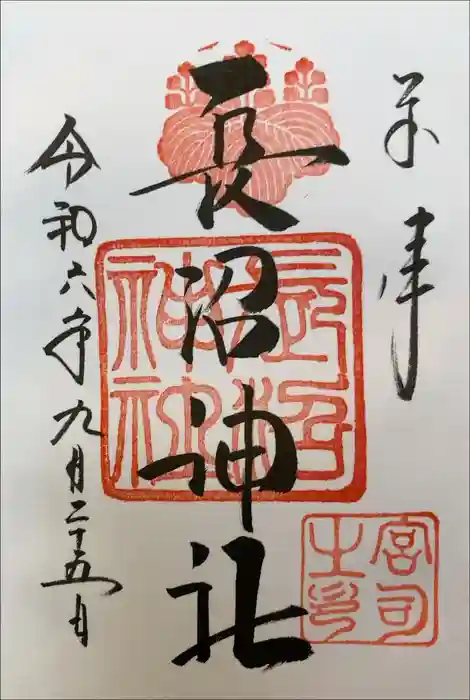 奉拝
長沼神社
長沼
神社
宮司
之印
令和六年九月二十五日